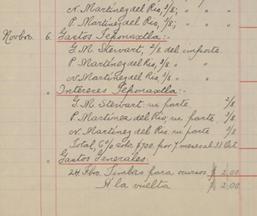 N. Martinez del Rio, 1/8, " "
P. Martinez del Rio, 1/8; " "
Novbre. 6. Gastos Tepmaxtla:-
G. M. Stewart, 2/8 del importe
P. Martinez del Rio, " "
N. Martinez del Rio, 1/8 "
Intereses Tepmaxtla:-
G. M. Stewart su parte 2/8
P. Martinez del Rio, su parte 1/8
N. Martinez del Rio, su parte 1/8
Total, 6% sobre $700. por 7 meses al 31 Oct.
Gastos Generales:
24 Fbro. Timbres para recursos $ 2.00
A la vuelta $ 2.00